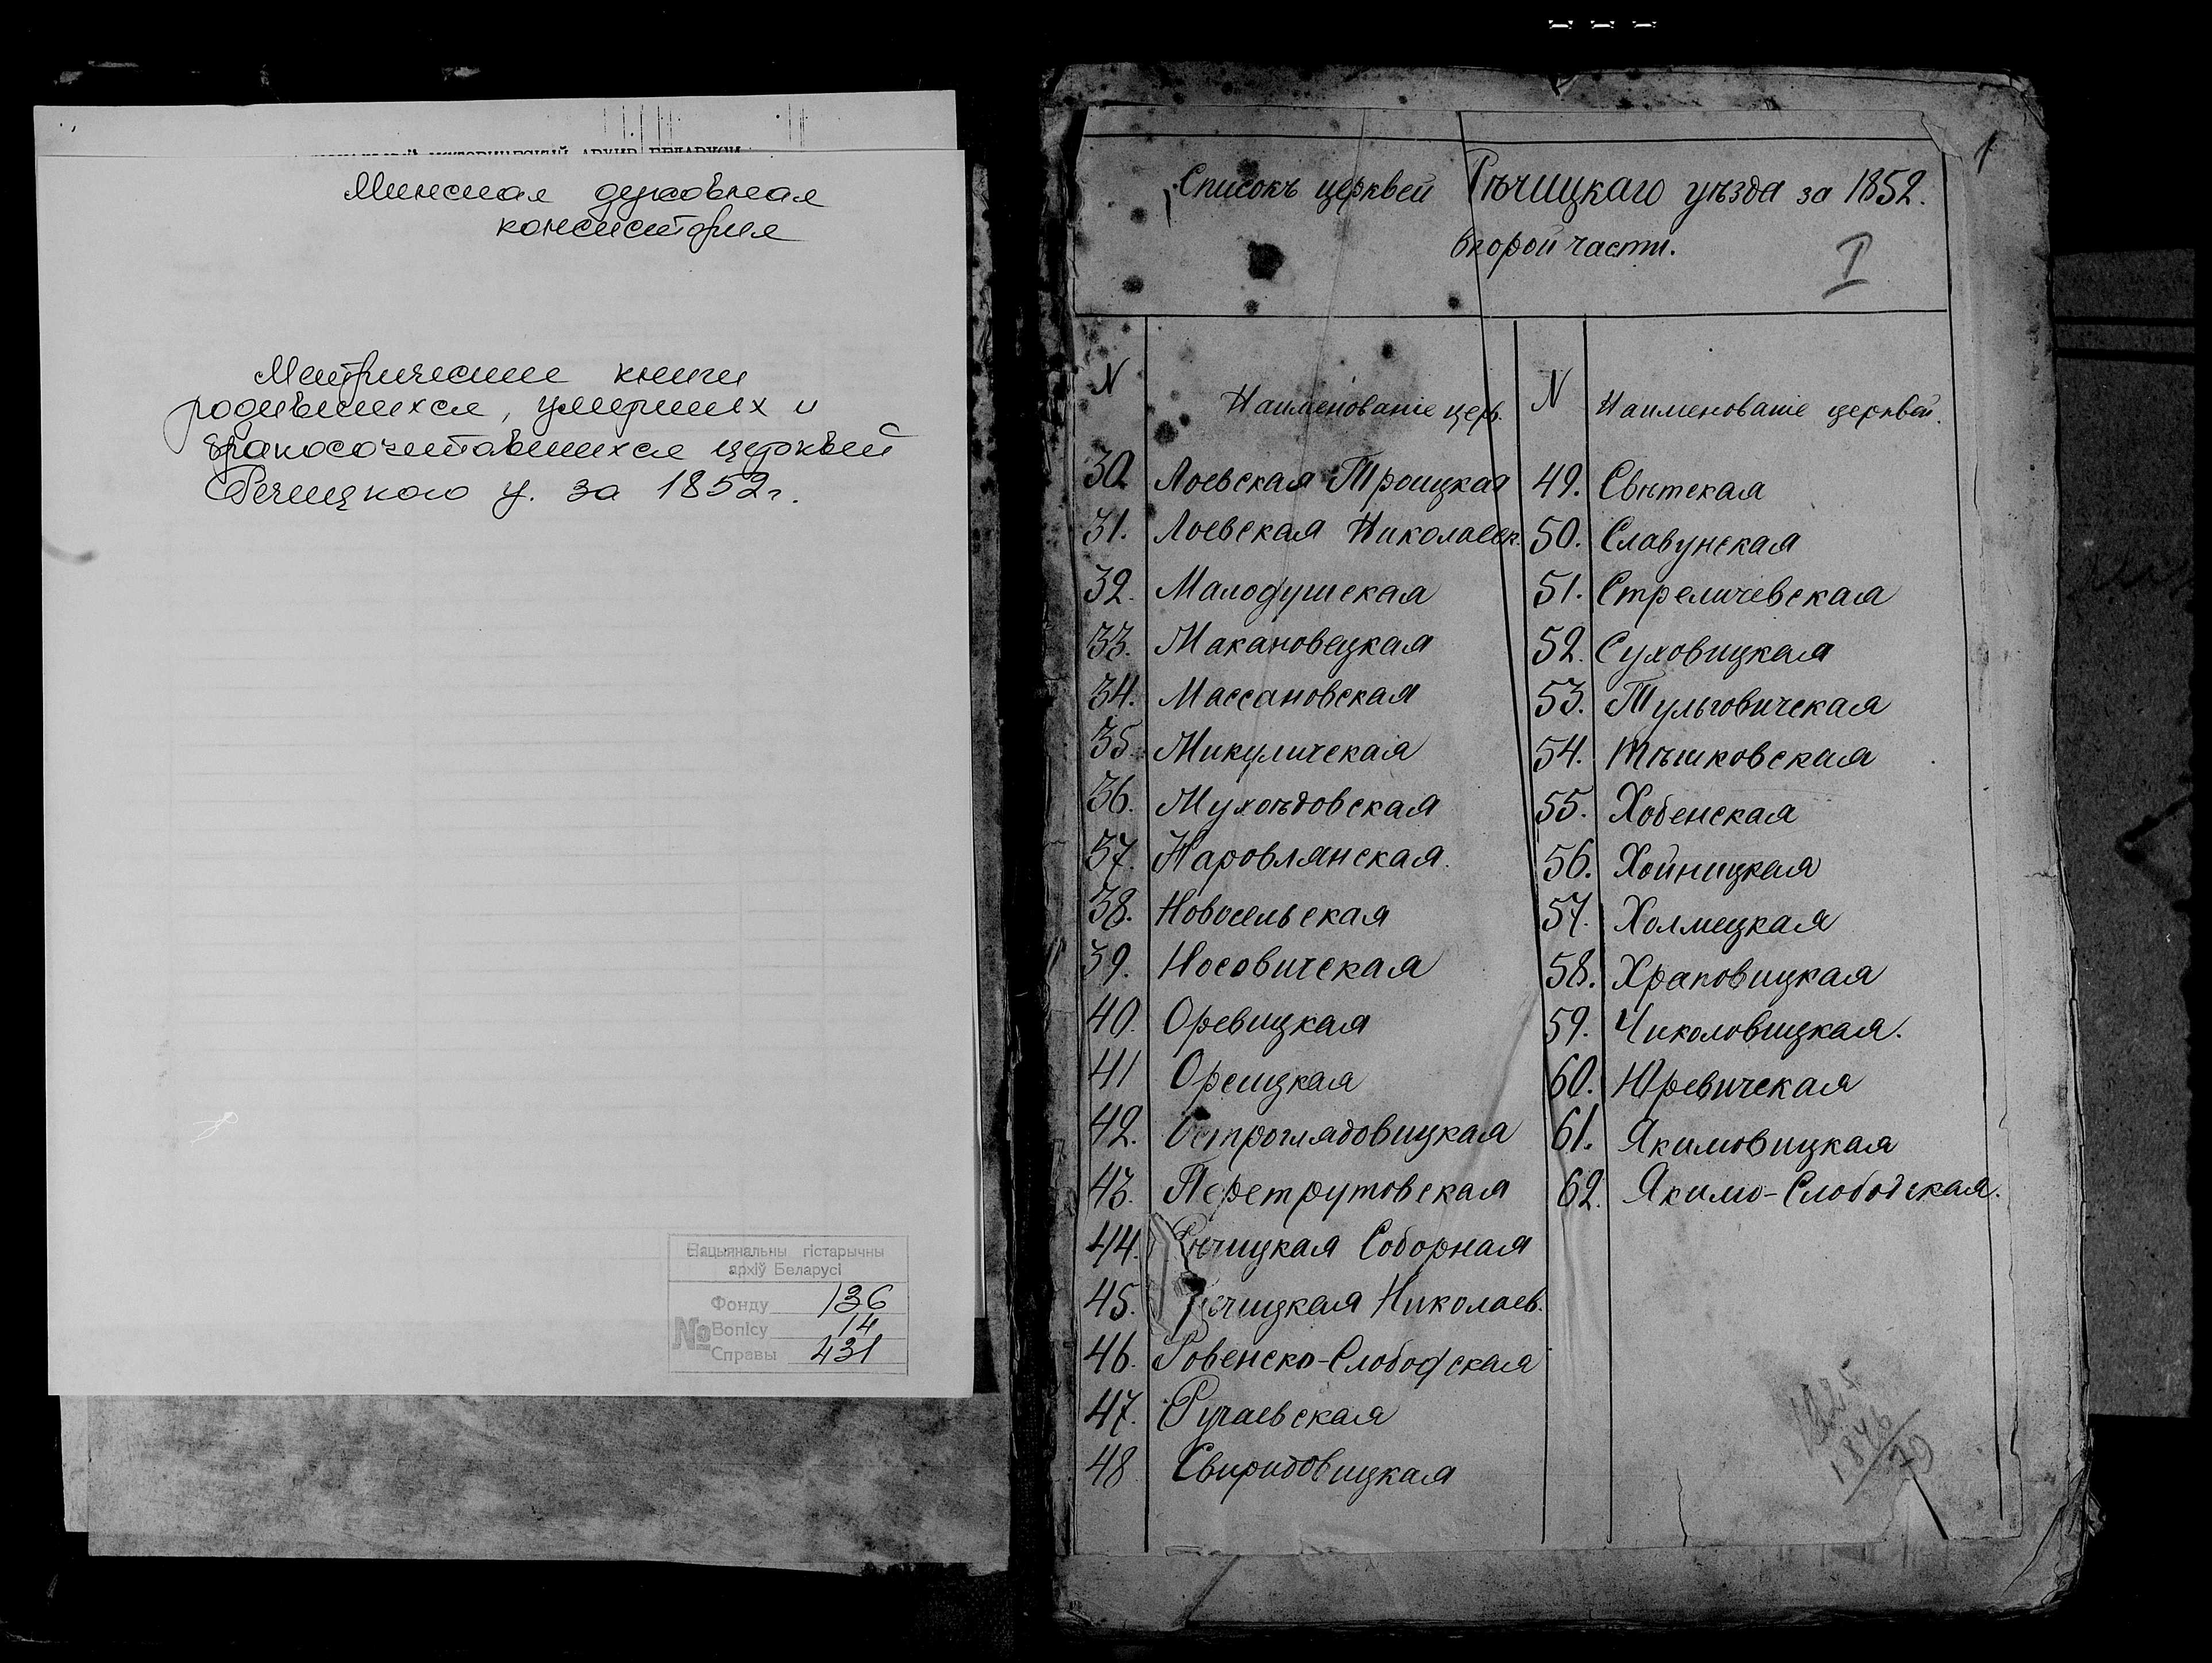 Минская духовная
консистория
Метрические книги
родившихся, умерших и
бракосочетавшихся церквей
Речицкого у. за 1852г.
Нацыянальны гістарычны
архіў Беларусі
Фонду 136
№ Вопісу 14
Справы 431
1
Списокъ церквей Рѣчицкаго уѣзда за 1852.
второй части.
I
N Наименованіе церк. N Наименованіе церквей.
30 Лоевская Троицкая 49. Свѣтская
31. Лоевская Николаевск. 50. Славунская
32. Малодушская 51. Стреличевская
33. Макановецкая 52. Суховицкая
34. Массановская 53. Тульговичская
35. Микуличская 54. Тѣшковская
36. Мухоѣдовская 55. Хобенская
37. Наровлянская. 56. Хойницкая
38. Новосельская 57. Холмецкая
39. Носовичская 58. Храповицкая
40. Оревицкая 59. Чиколовицкая.
41 Орѣицкая 60. Юревичская
42. Остроглядовицкая 61. Якимовицкая
43. Перетрутовская 62. Якимо-Слободская.
44. Рѣчицкая Соборная
45. Рѣчицкая Николаев.
46. Ровенско-Слободская
47. Ручаевская
48 Свиридовицкая